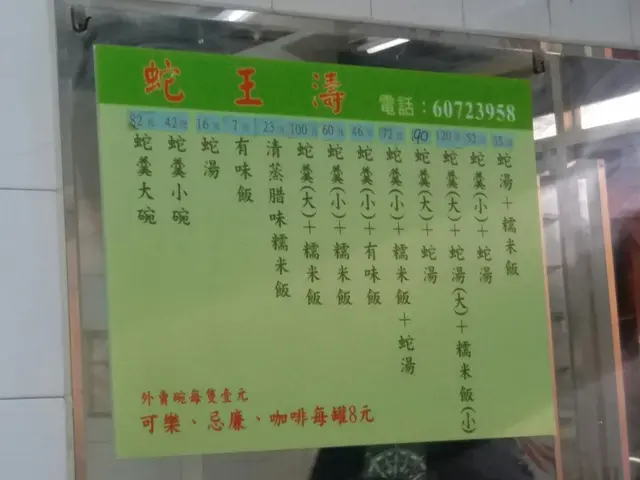 蛇王濤
電話：60723958
82元 蛇羹大碗
42元 蛇羹小碗
16元 蛇湯
7元 有味飯
23元 清蒸腊味糯米飯
100元 蛇羹(大)＋糯米飯
60元 蛇羹(小)＋糯米飯
46元 蛇羹(小)＋有味飯
72元 蛇羹(小)＋糯米飯＋蛇湯
90 蛇羹(大)＋蛇湯
120元 蛇羹(大)＋蛇湯(大)＋糯米飯(小)
52元 蛇羹(小)＋蛇湯
35元 蛇湯＋糯米飯
外賣碗每隻壹元
可樂、忌廉、咖啡每罐8元